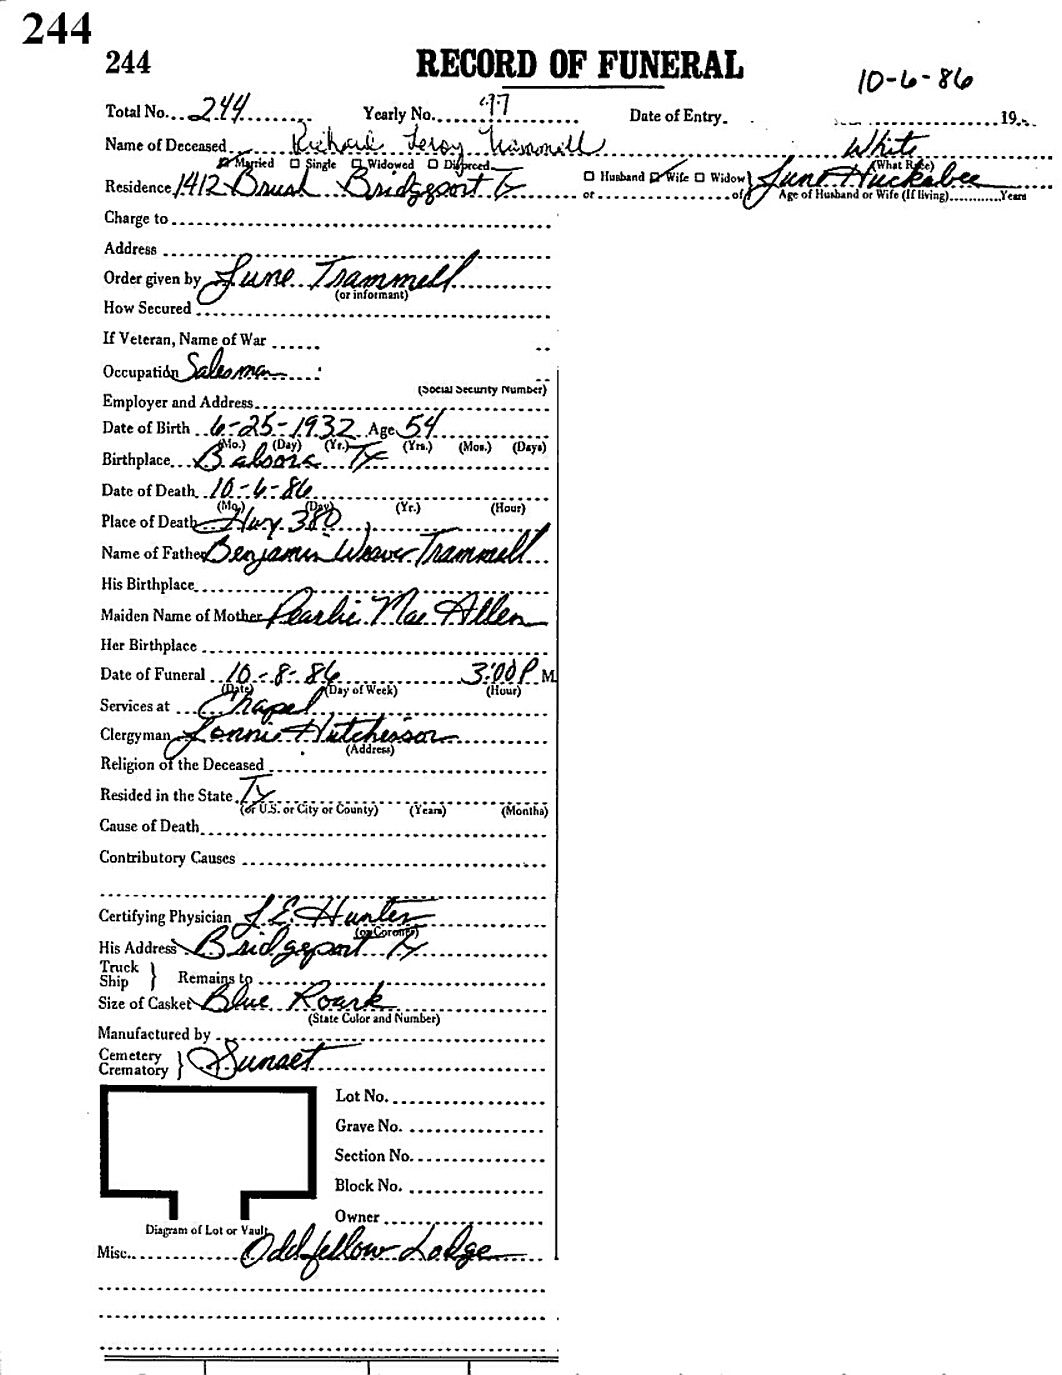 244
244 RECORD OF FUNERAL 10-6-86
Total No. 244 Yearly No. 97 Date of Entry 19
Name of Deceased Richard Leroy Trammell White
Married Single Widowed Divorced (What Race)
Residence 1412 Brush Bridgeport Tx Husband Wife Widow } June Huckabee
or of Age of Husband or Wife (If living) Years
Charge to
Address
Order given by June Trammell
(or informant)
How Secured
If Veteran, Name of War
Occupation Salesman
(Social Security Number)
Employer and Address
Date of Birth 6-25-1932 Age 54
(Mo.) (Day) (Yr.) (Yrs.) (Mos.) (Days)
Birthplace Balsora Tx
Date of Death 10-6-86
(Mo.) (Day) (Yr.) (Hour)
Place of Death Hwy 380
Name of Father Benjamin Weaver Trammell
His Birthplace
Maiden Name of Mother Pearlie Mae Allen
Her Birthplace
Date of Funeral 10-8-86 3:00 P M.
(Date) (Day of Week) (Hour)
Services at Chapel
Clergyman Lonnie Hutchisson
(Address)
Religion of the Deceased
Resided in the State Tx
(or U.S. or City or County) (Years) (Months)
Cause of Death
Contributory Causes
Certifying Physician J.E. Hunter
(or Coroner)
His Address Bridgeport Tx
Truck
Ship } Remains to
Size of Casket Blue Roark
(State Color and Number)
Manufactured by
Cemetery
Crematory } Sunset
Lot No.
Grave No.
Section No.
Block No.
Owner
Diagram of Lot or Vault
Misc. Oddfellow Lodge